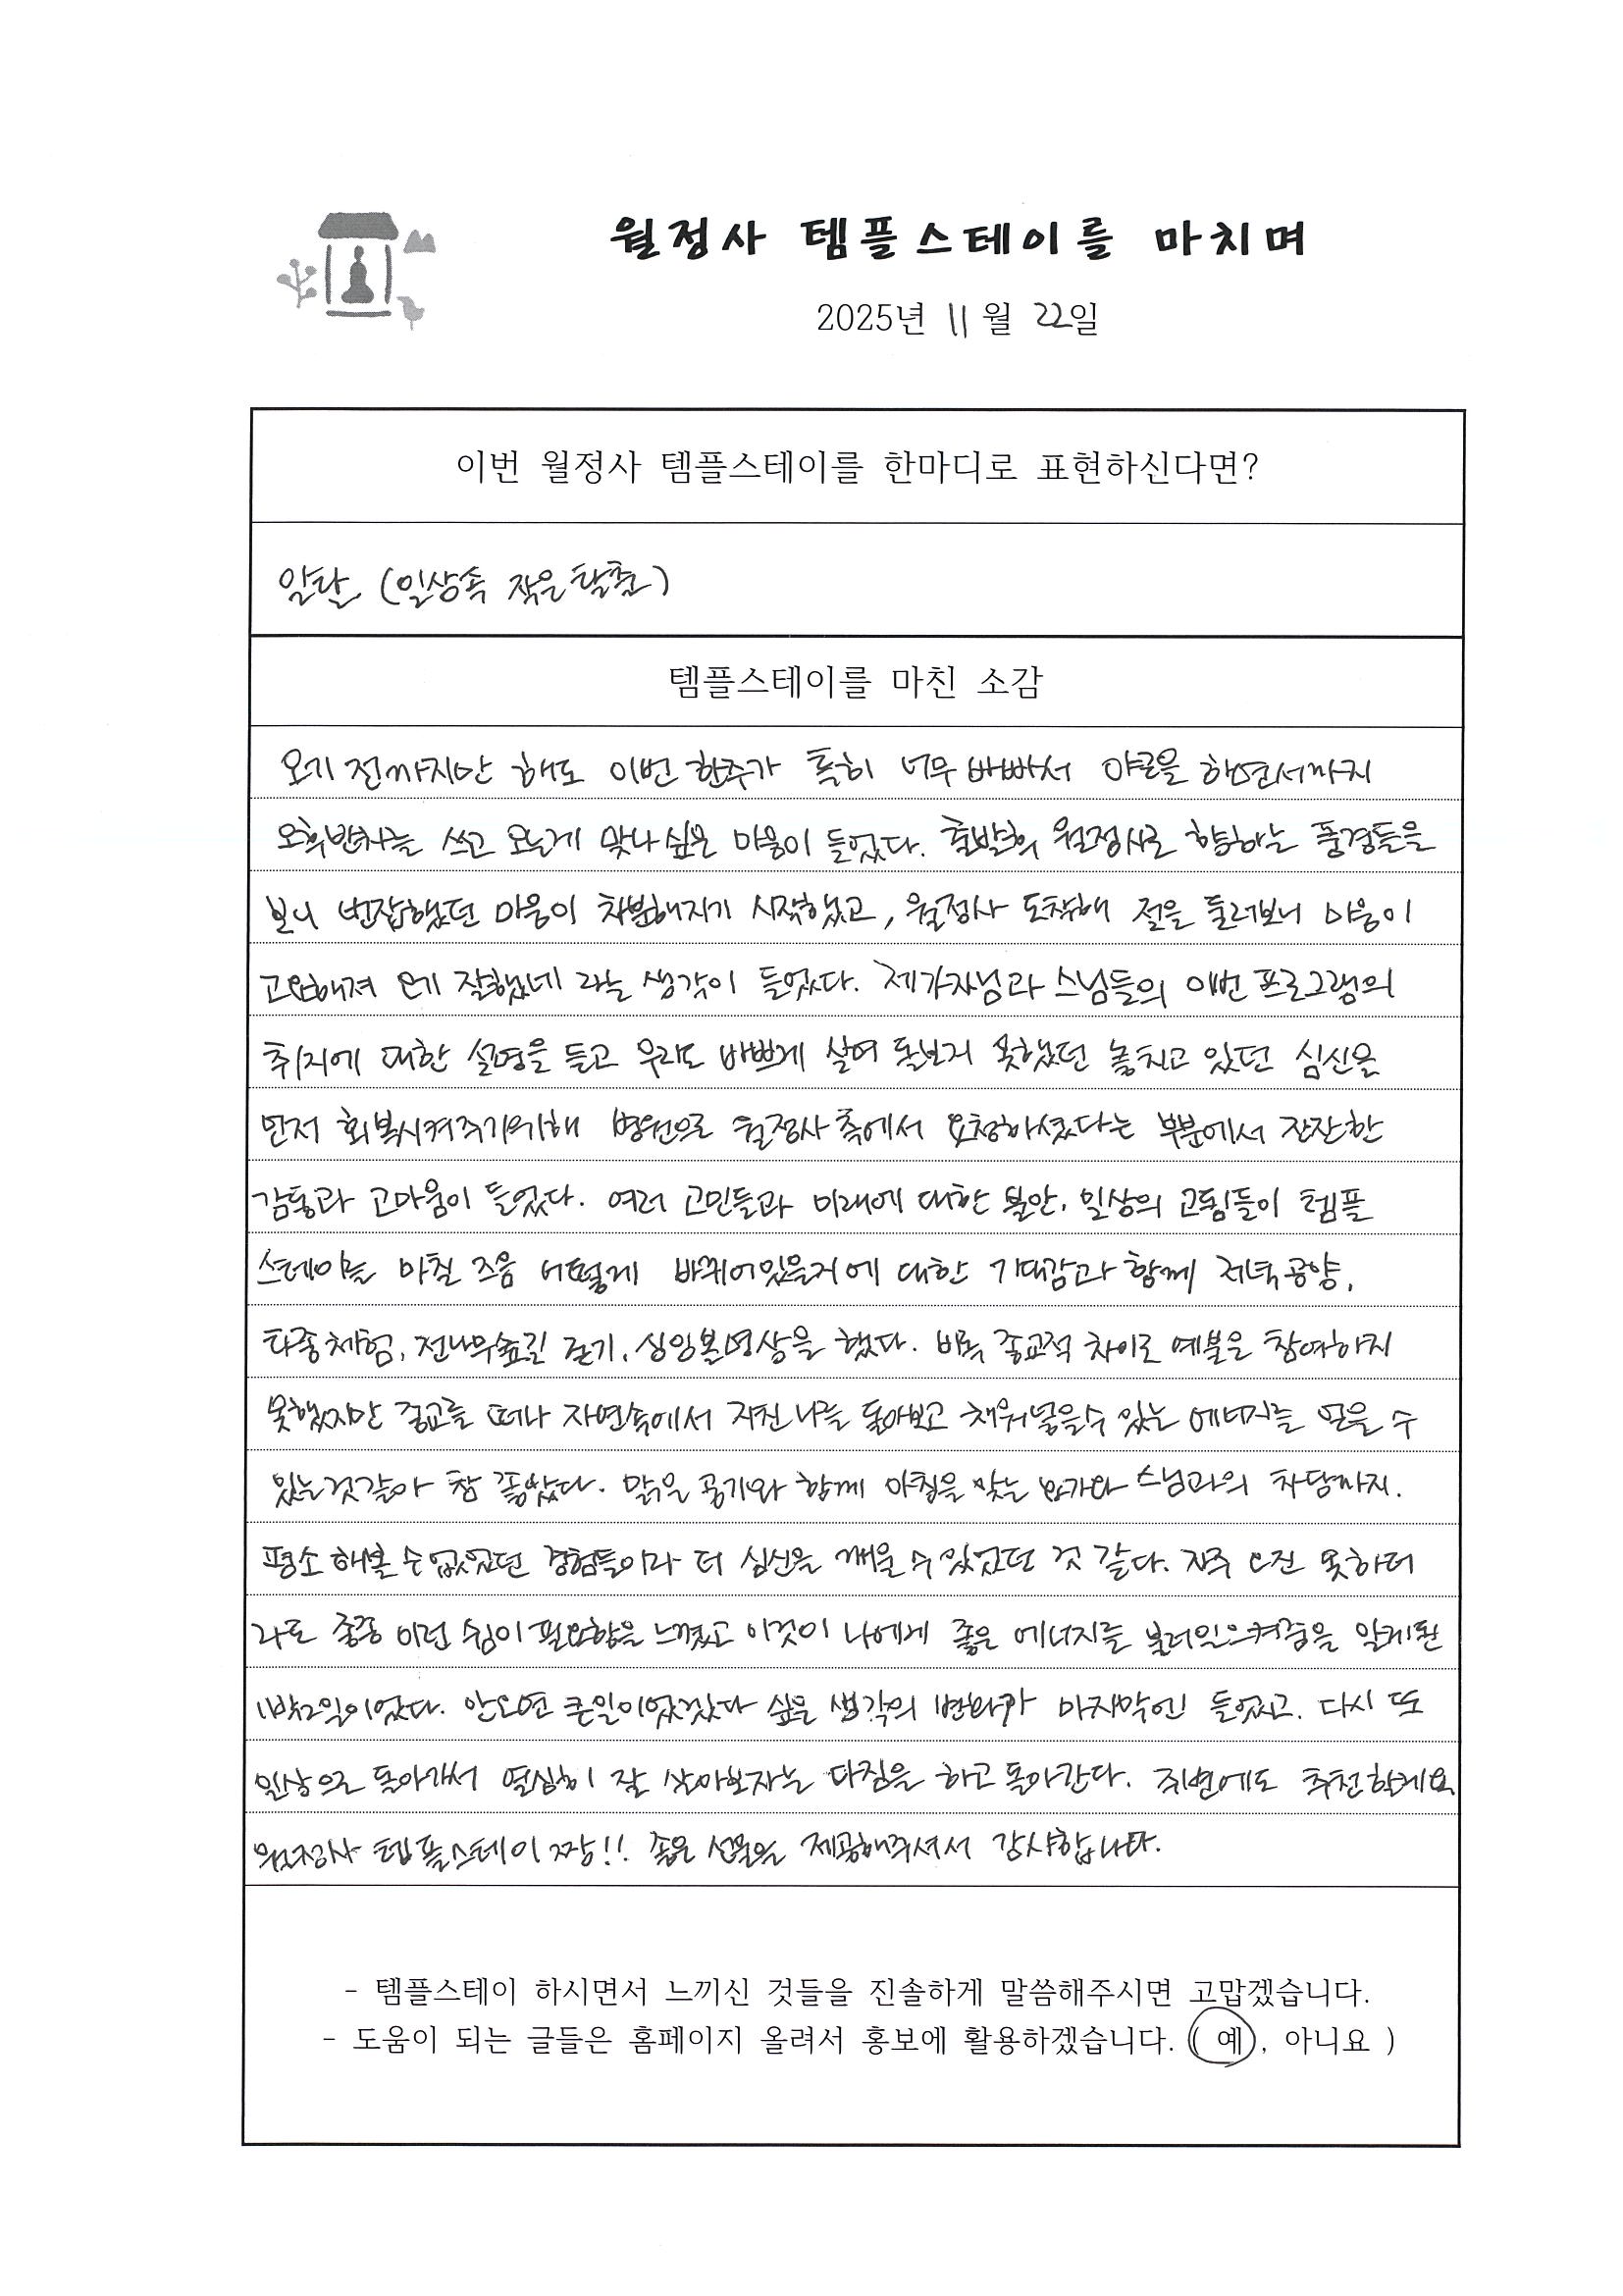 월정사 템플스테이를 마치며
2025년 11월 22일
이번 월정사 템플스테이를 한마디로 표현하신다면?
일탈 (일상속 작은탈출)
템플스테이를 마친 소감
오기 전까지만 해도 이번 한주가 특히 너무 바빠서 야근을 하면서까지
오후반차를 쓰고 오는게 맞나 싶은 마음이 들었다. 출발후 월정사로 향하는 풍경들을
보니 번잡했던 마음이 차분해지기 시작했고, 월정사 도착해 절을 둘러보니 마음이
고요해져 오기 잘했네 라는 생각이 들었다. 제가자님과 스님들의 이번 프로그램의
취지에 대한 설명을 듣고 우리도 바쁘게 살며 돌보지 못했던 놓치고 있던 심신을
먼저 회복시켜주기위해 병원으로 월정사측에서 요청하셨다는 부분에서 잔잔한
감동과 고마움이 들었다. 여러 고민들과 미래에 대한 불안, 일상의 고됨들이 템플
스테이를 마칠 즈음 어떻게 바뀌어있을지에 대한 기대감과 함께 저녁공양,
타종체험, 전나무숲길 걷기, 싱잉볼명상을 했다. 비록 종교적 차이로 예불은 참여하지
못했지만 종교를 떠나 자연속에서 지친 나를 돌아보고 채워넣을수 있는 에너지를 얻을 수
있는것같아 참 좋았다. 맑은 공기와 함께 아침을 맞는 요가와 스님과의 차담까지.
평소 해볼 수 없었던 경험들이라 더 심신을 깨울 수 있었던 것 같다. 자주 오진 못하더
라도 종종 이런 쉼이 필요함을 느꼈고 이것이 나에게 좋은 에너지를 불러일으켜줌을 알게된
1박2일이었다. 안오면 큰일이었겠다 싶을 생각의 변화가 마지막엔 들었고. 다시 또
일상으로 돌아가서 열심히 잘 살아보자는 다짐을 하고 돌아간다. 주변에도 추천할게요
월정사 템플스테이 짱!! 좋은 선물을 제공해주셔서 감사합니다.
- 템플스테이 하시면서 느끼신 것들을 진솔하게 말씀해주시면 고맙겠습니다.
- 도움이 되는 글들은 홈페이지 올려서 홍보에 활용하겠습니다. ( 예 , 아니요 )